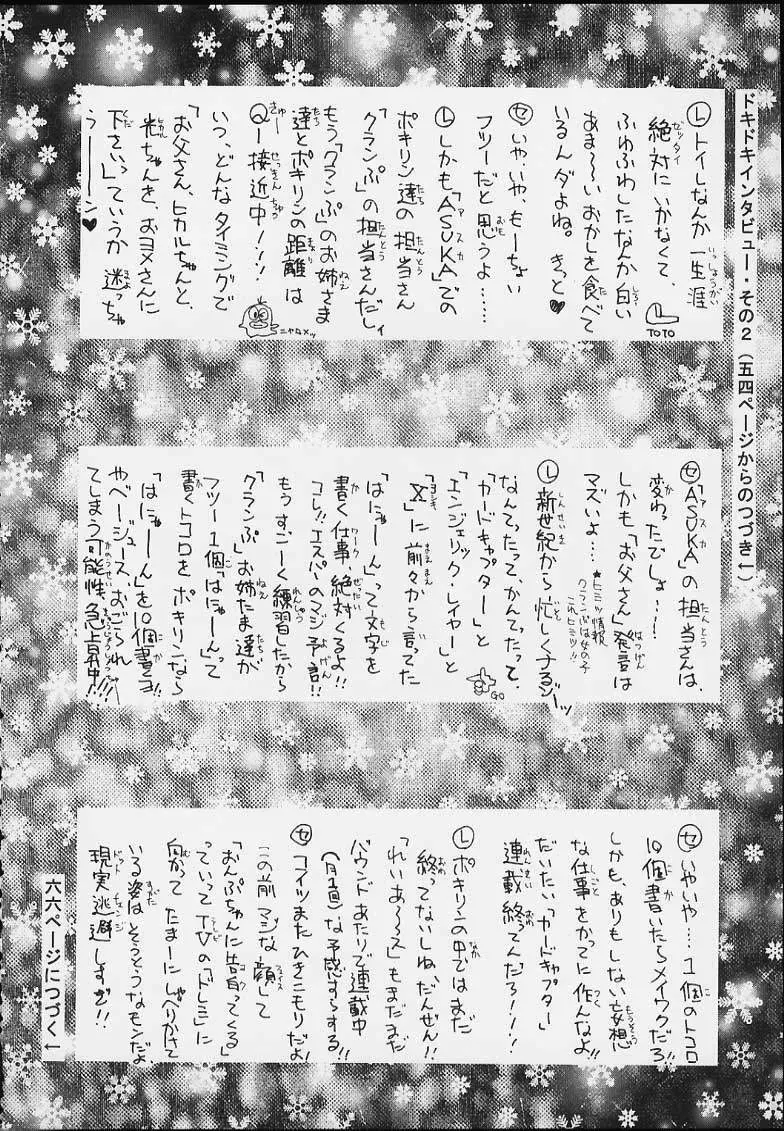 ドキドキインタビュー・その2(五四ページからのつづき↓)
Ⓛトイしなんか一生涯
絶対にいかなくて、
ふわふわしたなんか白い
あま〜いおかしを食べて
いるんダよね。きっと♥
TOTO
㋝いや、いや、もーちょい
フツーだと思うよ……
Ⓛしかも「ASUKA」での
ポキリン達の担当さん
「クランぷ」の担当さんだしィ
もう「クランぷ」のお姉さま
達とポキリンの距離は
Q一接近中!!!
いつ、どんなタイミングで
「お父さん、ヒカルちゃんと、
光ちゃんを、おヨメさんに
下さいっ」ていうか迷っちゃ
うーーーン♥
ニャロメッ
㋝「ASUKA」の担当さんは、
変わったでしょ……!
しかも「お父さん」発言は
マズいよ……
★ヒミツ情報
クランぷは女の子
これヒミツ!!
Ⓛ新世紀から忙しくなるゾーッ
なんてったってかんてたって、
「カードキャプター」と
「エンジェリック・レイヤー」と
GO
「X」に前々から言ってた
「はにゃーん」って文字を
書く仕事、絶対くるよ!!
コレ!!エスパーのマジ予言!!
もうすごーく練習したから
「クランぷ」お姉たま達が
フツー1個「はにゃーん」って
書くトコロをポキリンなら
「はにゃーん」を10個書くヨ!!
やべージュース、おごられ
てしまう可能性、急上昇中!!!
㋝いやいや…1個のトコロ
10個書いたらメイワクだろ!!
しかも、ありもしない妄想
な仕事をかってに作んなよ!!
だいたい「カードキャプター」
連載終ってんだろ!!!
Ⓛポキリンの中ではまだ
終ってないしね、だんぜん!!
「れいあ〜ス」もまだまだ
バウンドあたりで連載中
(月1回)な予感すらする!!
㋝コイツまたひきこもりだよ!
この前マジな顔して
「おんぷちゃんに告ってくる」
っていってTVの「ドレミ」に
向かってたまーにしゃべりかけて
いる姿はそうとうなモンだよ
現実逃避しすぎ!!
六六ページにつづく↓